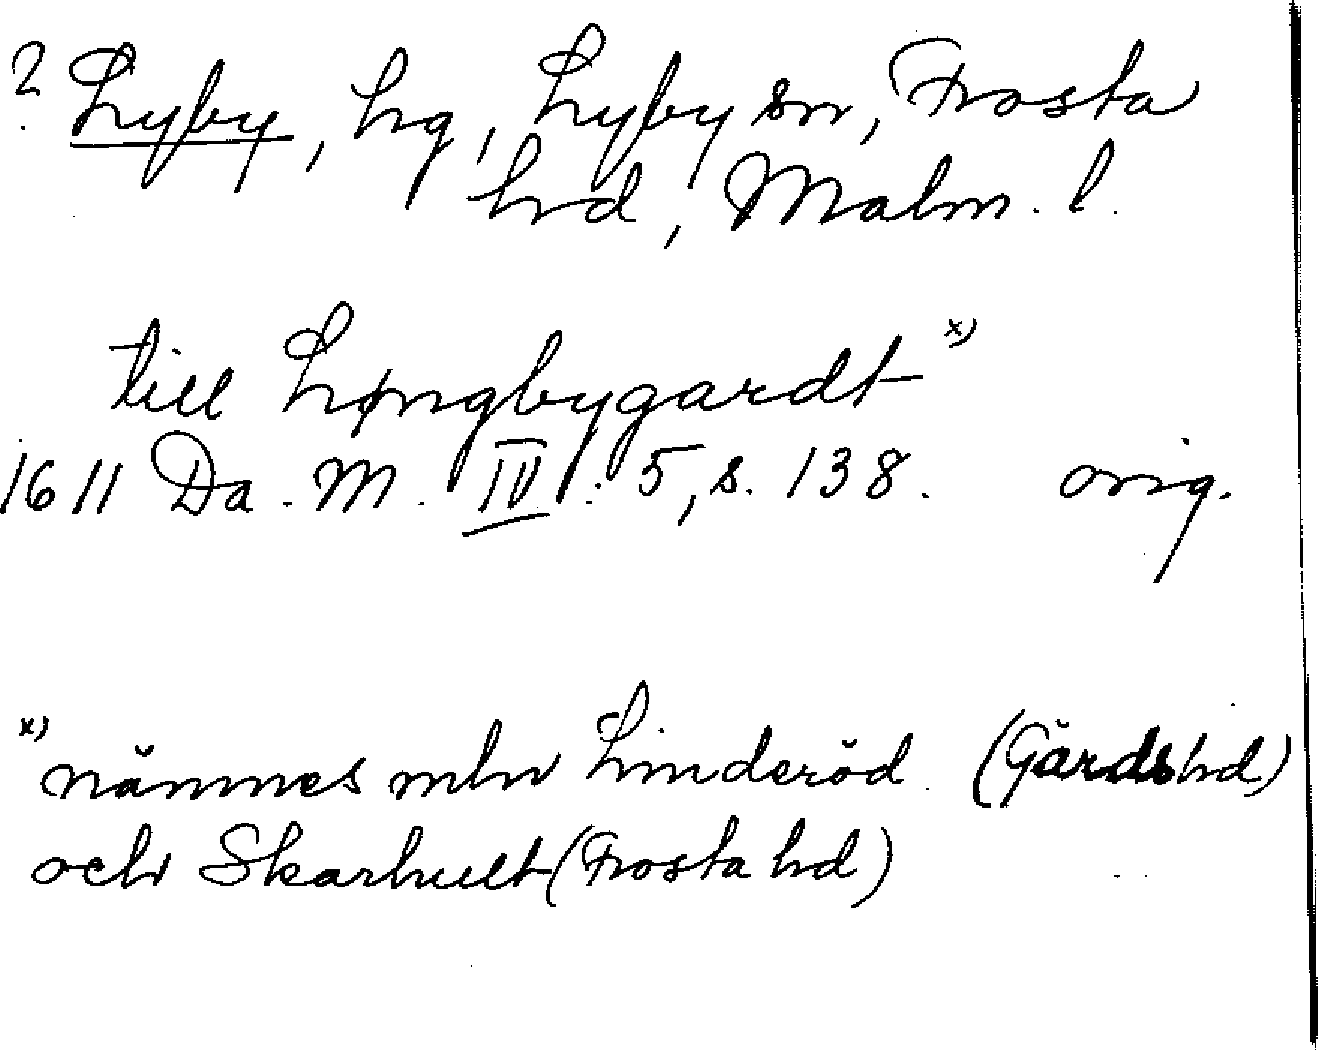 ? Lyby, hg, Lyby sn, Frosta
hd, Malm. l.
till Løngbygardt x)
1611 Da. M. IV: 5, s. 138. orig.
x) nämnes mln Linderöd (Gärds hd)
och Skarhult (Frosta hd)